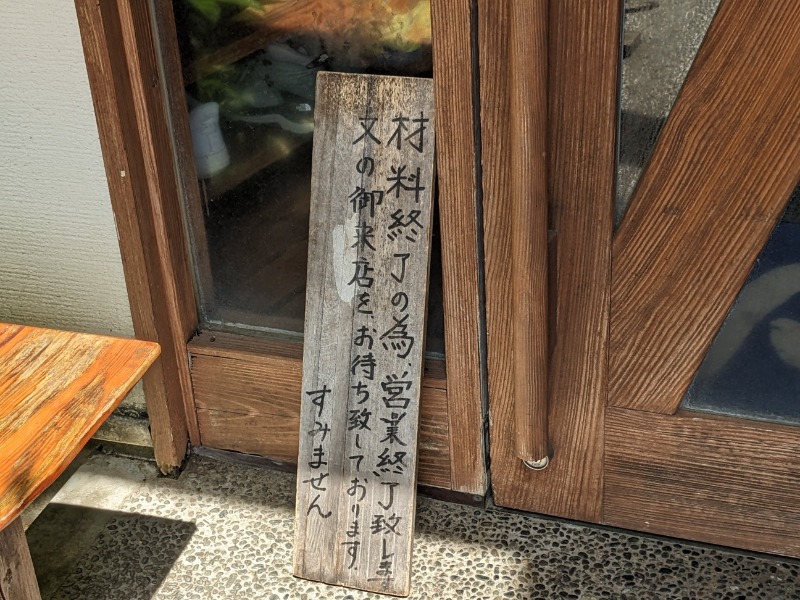 材料終了の為、営業終了致しま
又の御来店を、お待ち致しております。
すみません